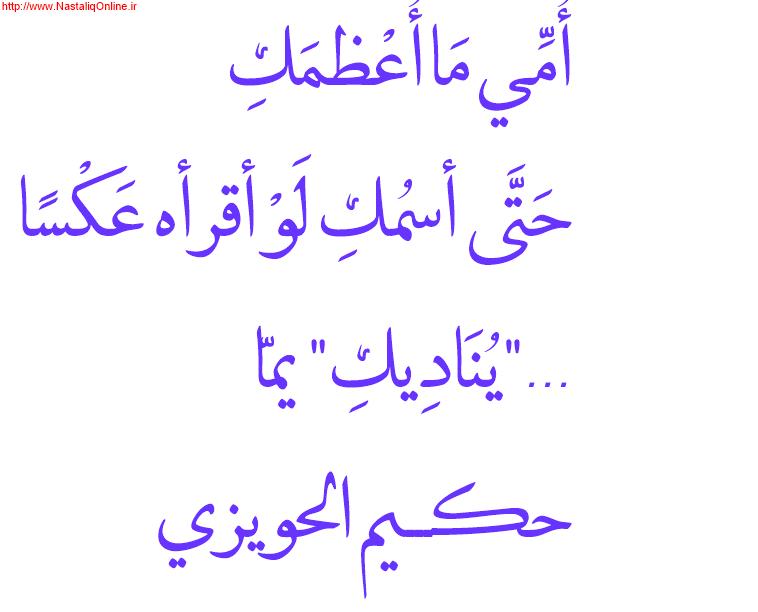 http://www.NastaliqOnline.ir
أُمِّي مَا أُعْظمَكِ
حَتَّى أسمُكِ لَوْ أقرأه عَكْسًا
..."يُنَادِيكِ" يمّا
حكيم الحويزي